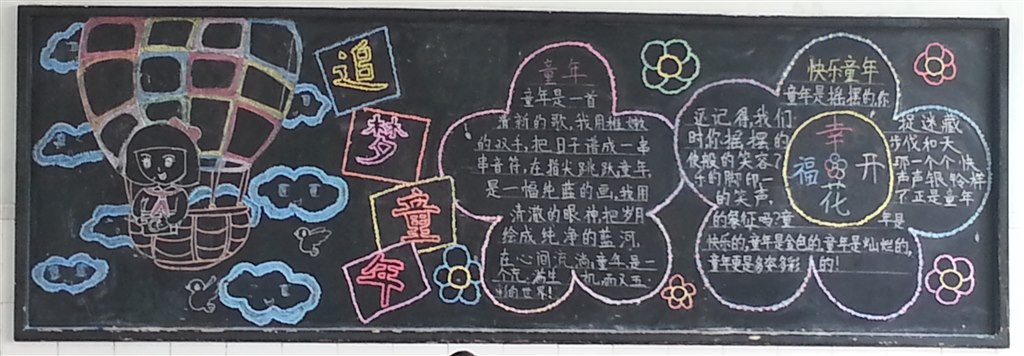 追
梦
童
年
童年
童年是一首
清新的歌,我用稚嫩
的双手,把日子谱成一串
串音符,在指尖跳跃童年,
是一幅纯蓝的画,我用
清澈的眼神把岁月
绘成纯净的蓝河,
在心间流淌童年是一
个充满生机,而又五
彩的世界!
快乐童年
童年是摇摆的,你
还记得我们
时你摇摆的
使般的笑容?
乐的脚印一
的笑声,
的象征吗?童
捉迷藏
步伐和天
那一个个快
声声银铃样
不正是童年
年是
快乐的,童年是金色的,童年是灿烂的,
童年更是多姿多彩的!
幸
福
花
开